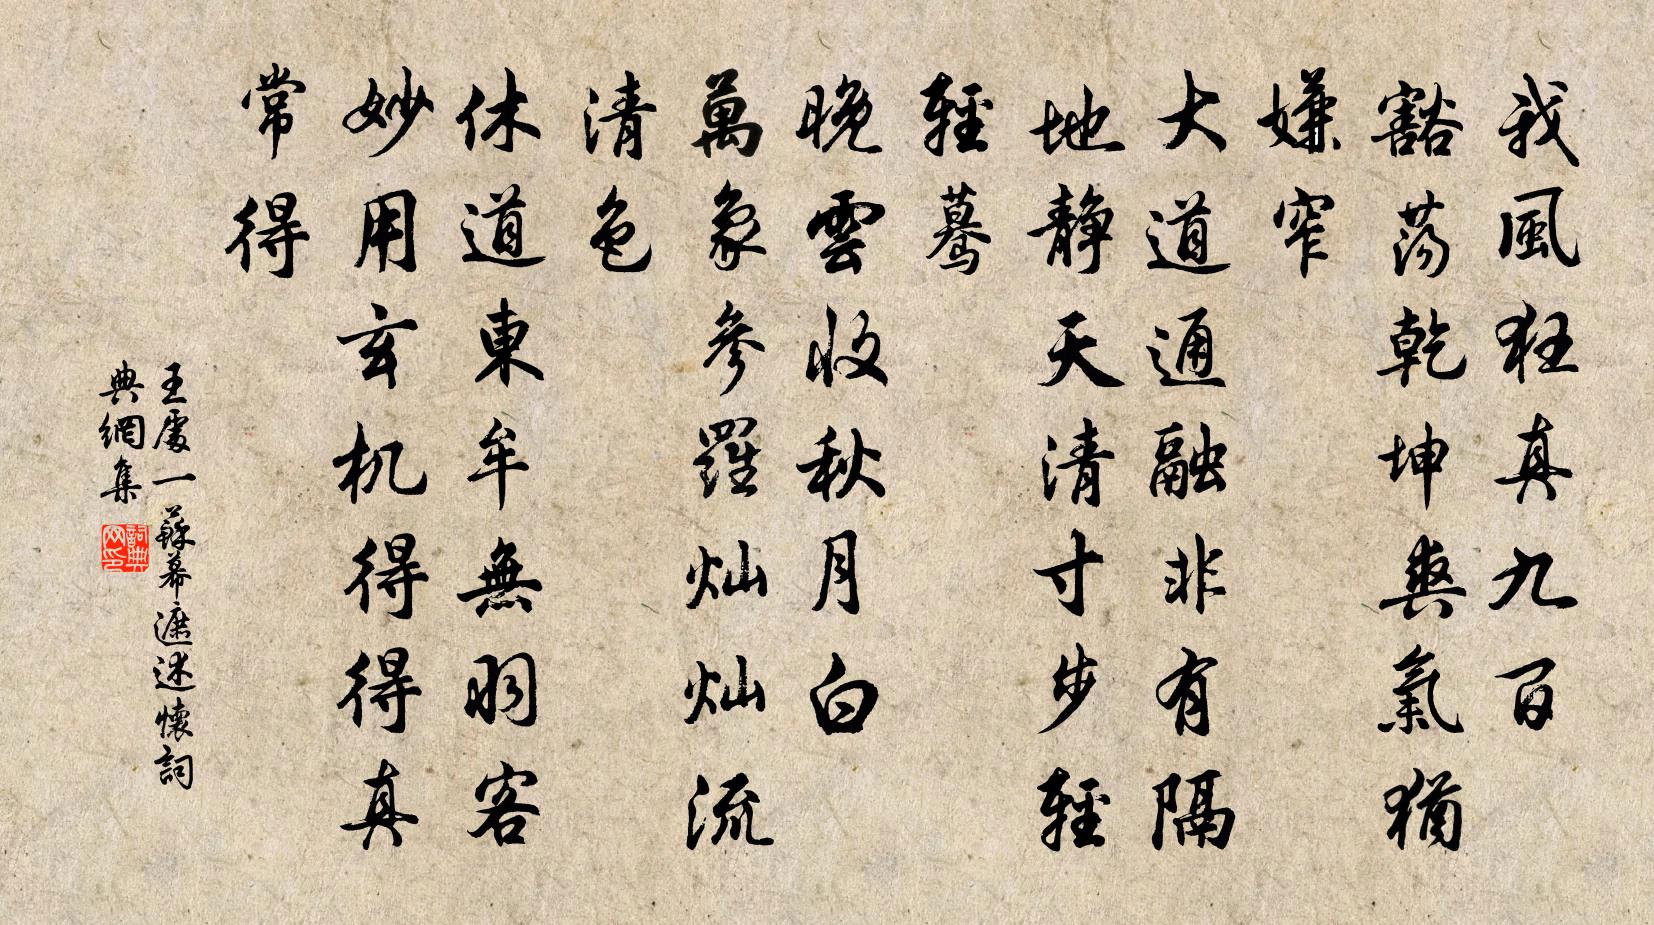 我風狂真九百
豁蕩乾坤爽氣猶
嫌窄
大道通融非有隔
地靜天清寸步輕
輕驀
晚雲收秋月白
萬象參羅灿灿流
清色
休道東牟無羽客
妙用玄机得得真
常得
王處一蘇幕遮述懷詞
典網集
詞典網印